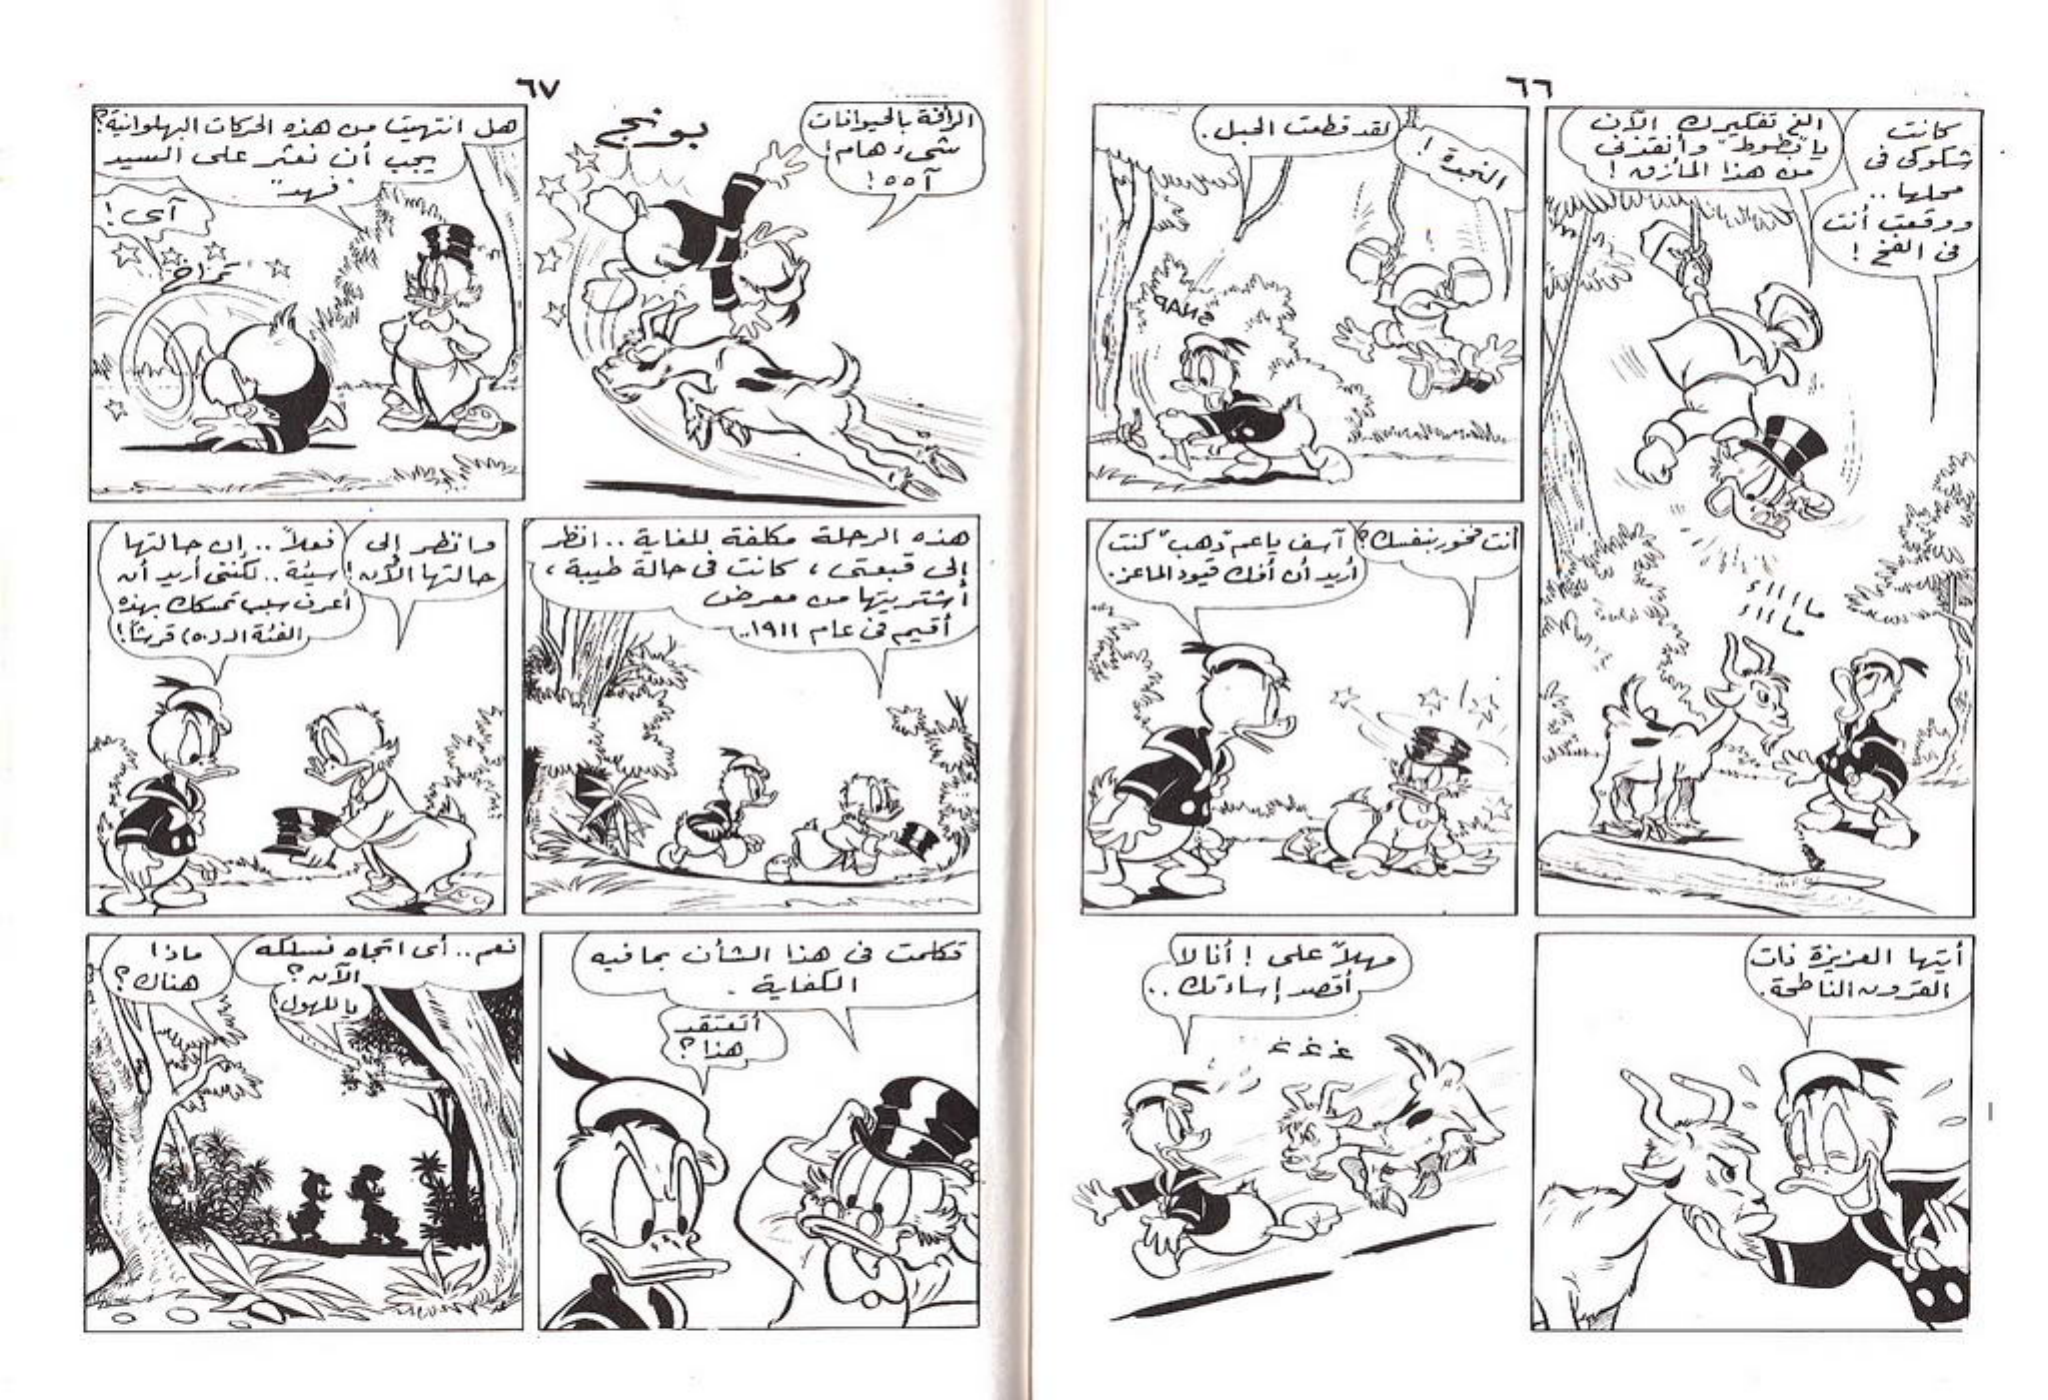 ٦٦
كانت
شكوكى فى
محلها ..
ووقعت أنت
فى الفخ !
الغ تفكيرك الآن
يا "بطوط" وأنقذنى
من هذا المأزق !
ما ا ا ا ء
ما ا ا ء
النجدة !
لقد قطعت الحبل .
SNAP
أنت فخور بنفسك ؟
آسف ياعم "دهب" كنت
أريد أن أفك قيود الماعز .
أيتها العزيزة ذات
القرون الناطحة .
مهلاً على ! أنا لا
أقصد إساءتك ..
غ غ غ
٦٧
الرأفة بالحيوانات
شىء هام !
آ ه ه !
بونج
هل انتهيت من هذه الحركات البهلوانية ؟
يجب أن نعثر على السيد
"فهد"
آى !
هذه الرحلة مكلفة للغاية .. انظر
إلى قبعتى ، كانت فى حالة طيبة ،
اشتريتها من معرض
أقيم فى عام ١٩١١..
وانظر إلى
حالتها الآن !
فعلاً .. إن حالتها
سيئة .. لكننى أريد أن
أعرف سبب تمسكك بهذه
الفئة الـ (٥٠) قرشاً !
تكلمت فى هذا الشأن بما فيه
الكفاية .
أتعتقد
هذا ؟
نعم .. أى اتجاه نسلكه
الآن ؟
ياللهول !
ماذا
هناك ؟